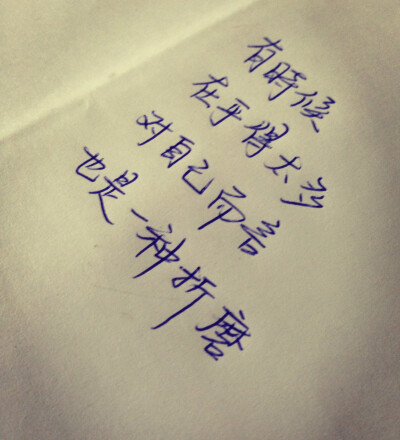 有時候
在乎得太多
对自己而言
也是一种折磨